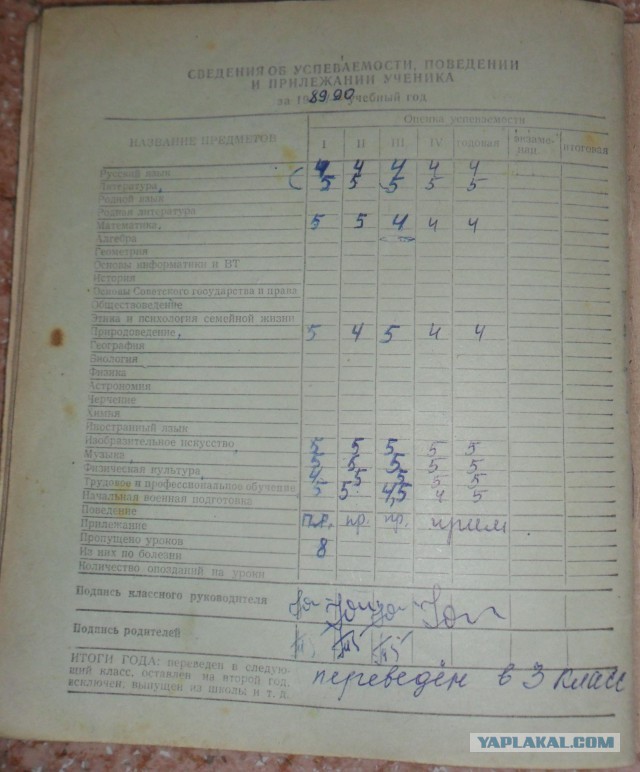 СВЕДЕНИЯ ОБ УСПЕВАЕМОСТИ, ПОВЕДЕНИИ
И ПРИЛЕЖАНИИ УЧЕНИКА
за 19 89-90 учебный год
НАЗВАНИЕ ПРЕДМЕТОВ
Оценка успеваемости
I II III IV годовая экзамен. итоговая
Русский язык 4 4 4 4 4
Литература 5 5 5 5 5
Родной язык
Родная литература
Математика 5 5 4 4 4
Алгебра
Геометрия
Основы информатики и ВТ
История
Основы Советского государства и права
Обществоведение
Этика и психология семейной жизни
Природоведение 5 4 5 4 4
География
Биология
Физика
Астрономия
Черчение
Химия
Иностранный язык
Изобразительное искусство 5 5 5 5 5
Музыка 5 5 5 5 5
Физическая культура 4 5 5 5 5
Трудовое и профессиональное обучение 5 5 4,5 4 5
Начальная военная подготовка
Поведение пр. пр. прим
Прилежание
Пропущено уроков 8
Из них по болезни
Количество опозданий на уроки
Подпись классного руководителя
Подпись родителей
ИТОГИ ГОДА: переведен в следую-
щий класс, оставлен на второй год,
исключен, выпущен из школы и т. д.
переведён в 3 класс
YAPLAKAL.COM